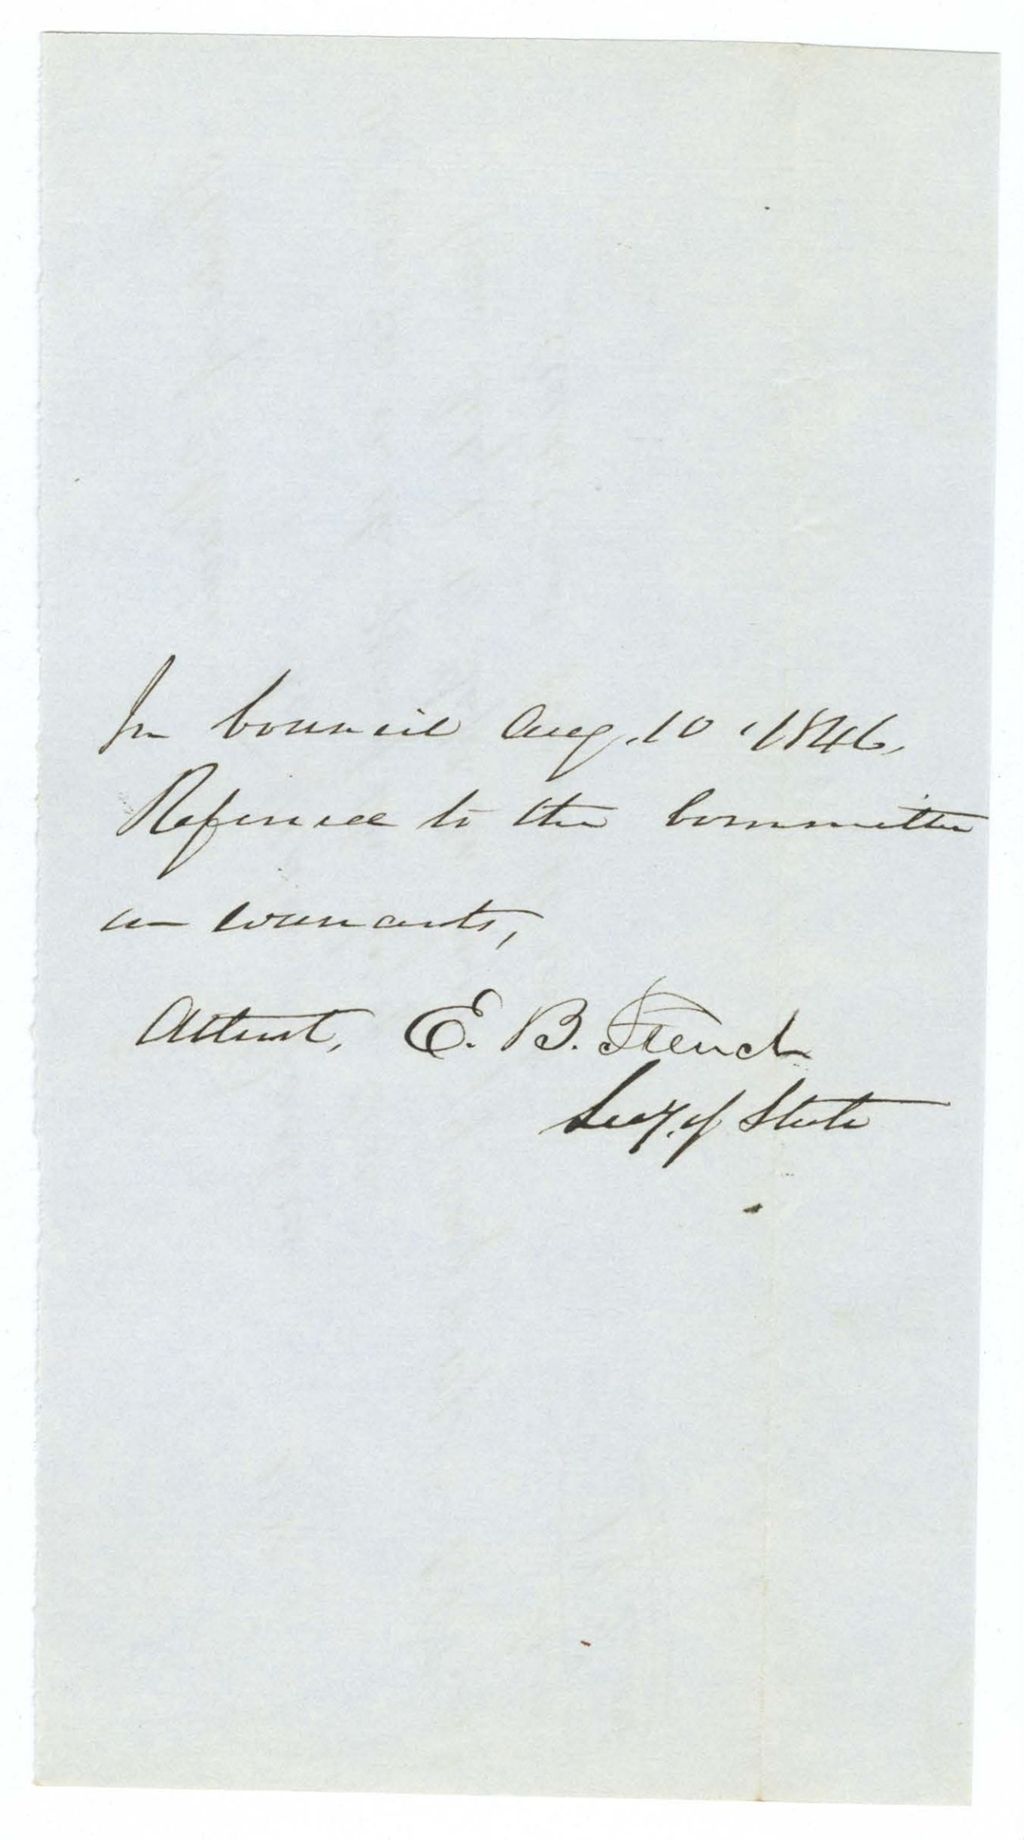 In Council Aug. 10, 1846.
Referred to the Committee
on Warrants,
Attest, E. B. French
Secy. of State